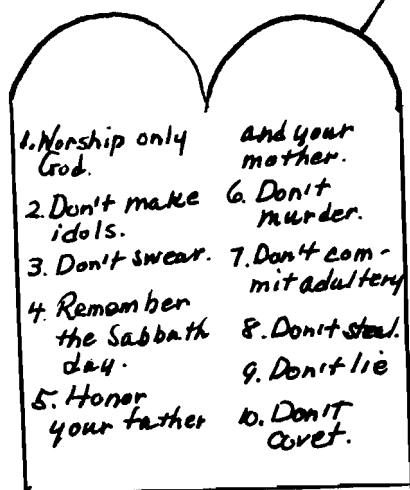 1. Worship only
God.
2. Don't make
idols.
3. Don't swear.
4. Remember
the Sabbath
day.
5. Honor
your father
and your
mother.
6. Don't
murder.
7. Don't com-
mit adultery
8. Don't steal.
9. Don't lie
10. Don't
covet.